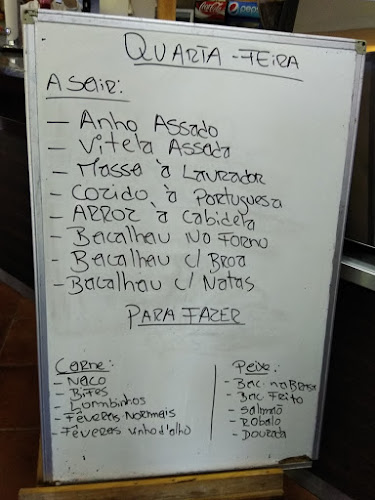 Coca-Cola
pepsi
QUARTA-FEIRA
A SAIR:
- Anho Assado
- Vitela Assada
- Massa à Lavrador
- Cozido à Portuguesa
- ARROZ à Cabidela
- Bacalhau No Forno
- Bacalhau c/ Broa
- Bacalhau c/ Natas
PARA FAZER
Carne:
- NACO
- Bifes
- Lombinhos
- Fêveras Normais
- Fêveras vinho d'alho
Peixe:
- Bac. na Brasa
- Bac. Frito
- Salmão
- Robalo
- Dourada